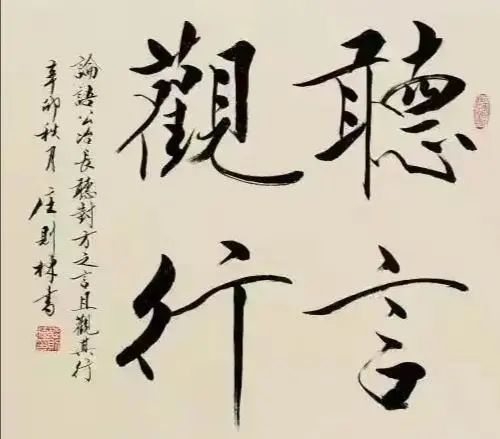 聽言
觀行
論語公冶長聽封方之言且觀其行
辛卯秋月庄則棟書